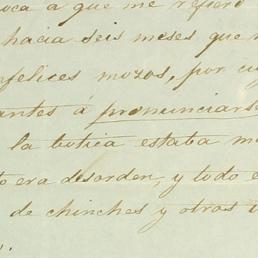 oca a que me refiero
hacia seis meses que
nfelices mozos, por cu
antes á pronunciars
la botica estaba m
o era desorden, y todo e
de chinches y otros i